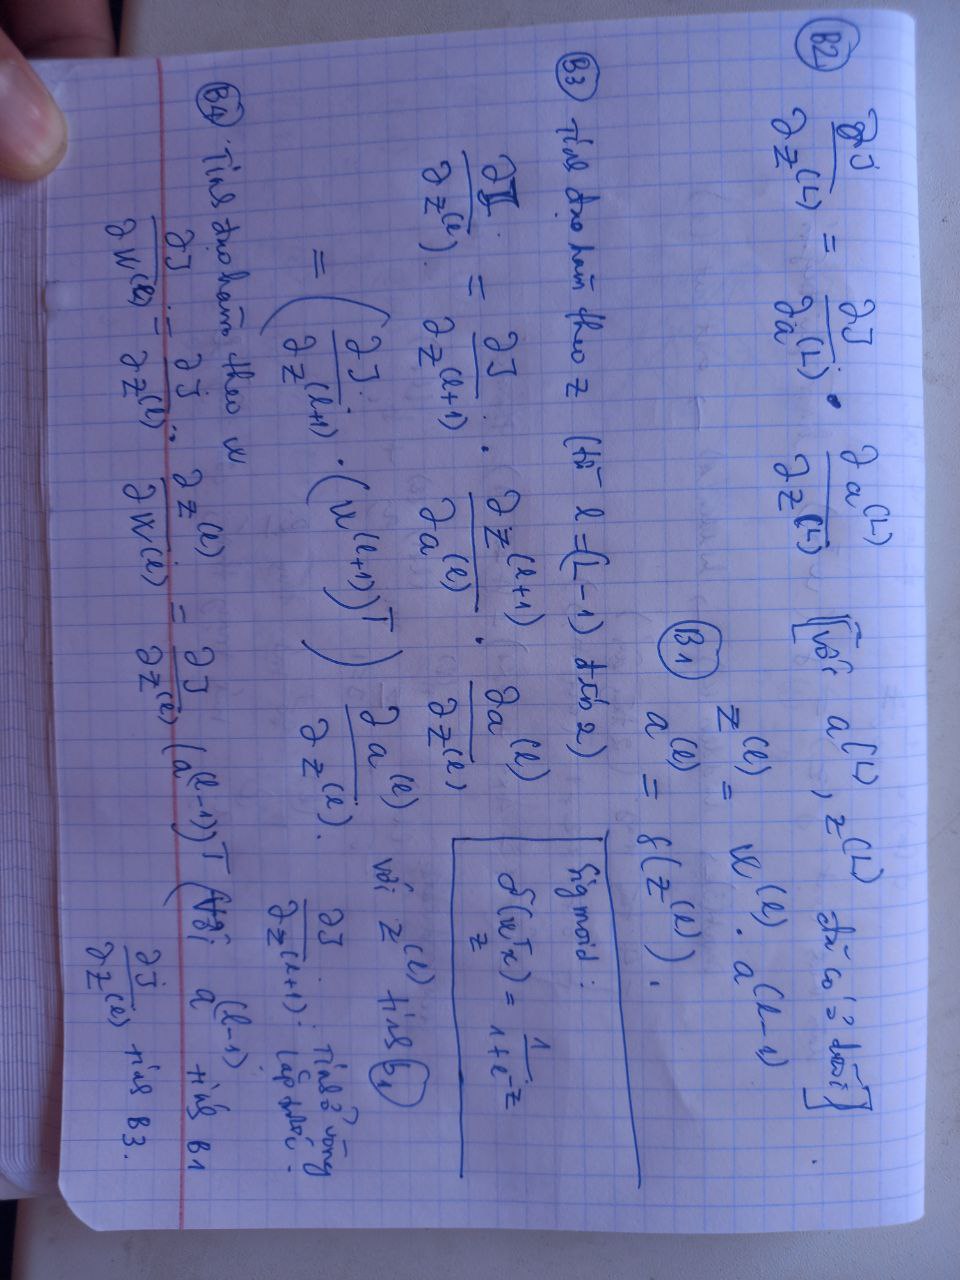 B2 ∂J/∂z^(L) = ∂J/∂a^(L) · ∂a^(L)/∂z^(L) [với a^(L), z^(L) đã có ở dưới].
B1 z^(l) = w^(l) . a^(l-1)
a^(l) = f(z^(l)).
B3 Tính đạo hàm theo z (từ l = (L-1) đến 2)
∂J/∂z^(l) = ∂J/∂z^(l+1) · ∂z^(l+1)/∂a^(l) · ∂a^(l)/∂z^(l)
Sigmoid:
σ(w^T x) = 1/(1+e^-z)
z
= (∂J/∂z^(l+1) · (w^(l+1))^T) ∂a^(l)/∂z^(l).
với z^(l) tính b1
∂J/∂z^(l+1): Tính ở vòng
lặp trước.
B4 Tính đạo hàm theo w
∂J/∂w^(l) = ∂J/∂z^(l) · ∂z^(l)/∂w^(l) = ∂J/∂z^(l) (a^(l-1))^T (với a^(l-1) tính B1
∂J/∂z^(l) tính B3.